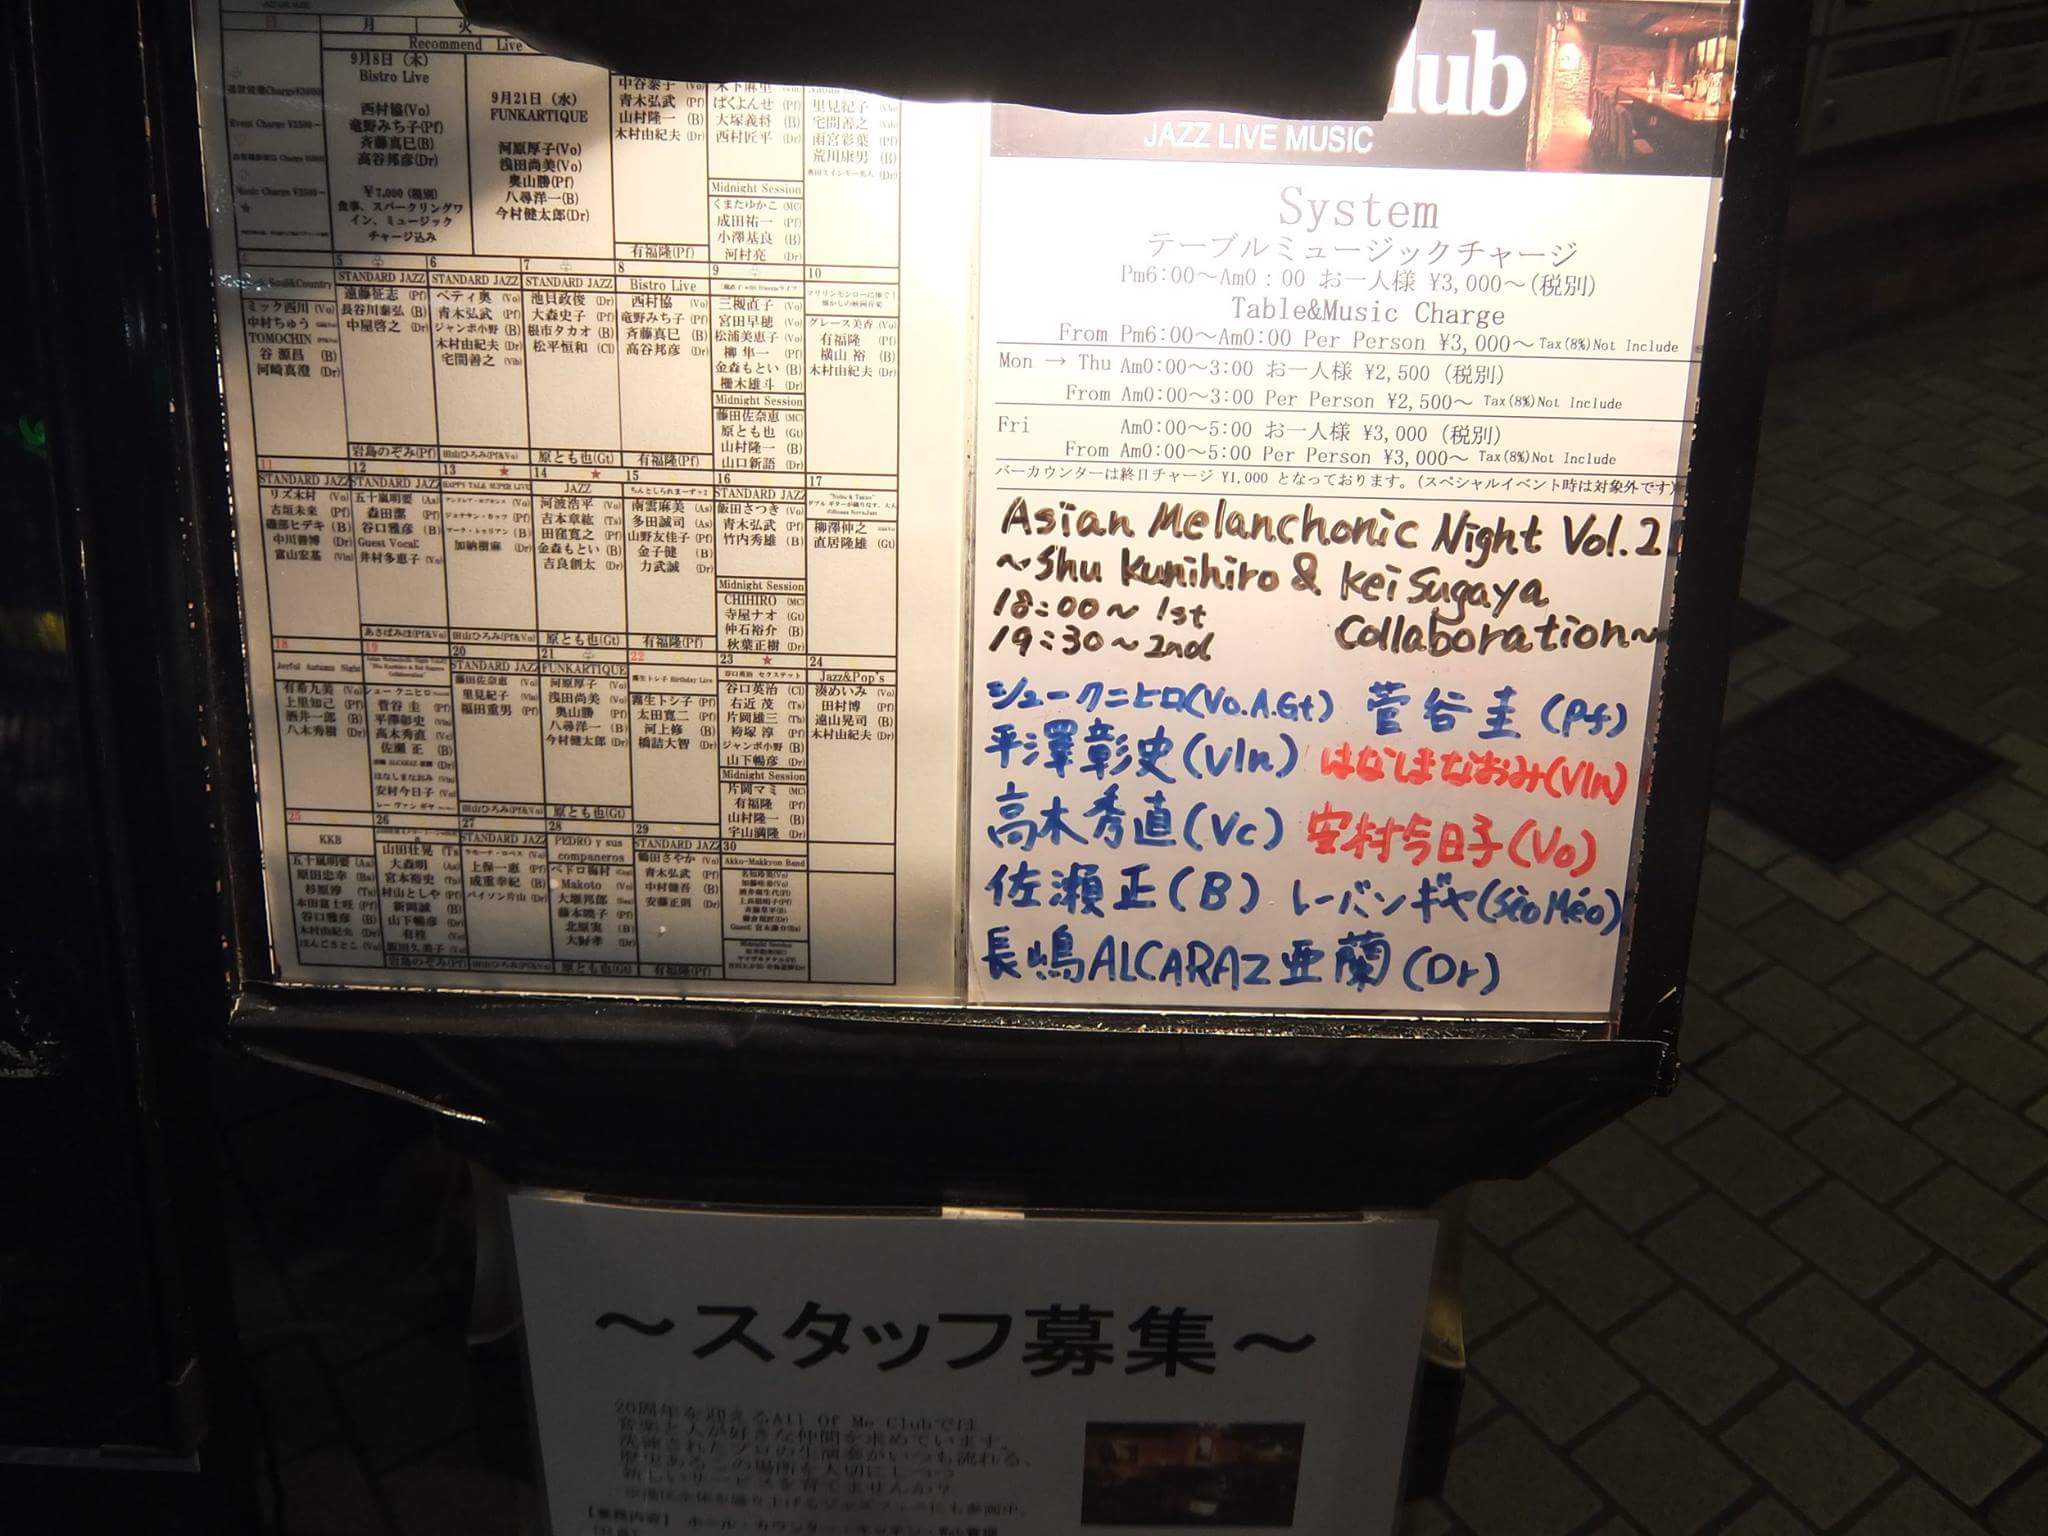 JAZZ LIVE MUSIC
月 火
Recommend Live
9月8日 (木)
Bistro Live
西村協(Vo)
竜野みち子(Pf)
斉藤真巳(B)
高谷邦彦(Dr)
¥7,000 (税別)
食事、スパークリングワ
イン、ミュージック
チャージ込み
9月21日 (水)
FUNKARTIQUE
河原厚子(Vo)
浅田尚美(Vo)
奥山勝(Pf)
八尋洋一(B)
今村健太郎(Dr)
中谷泰子 (Vo)
青木弘武 (Pf)
山村隆一 (B)
木村由紀夫 (Dr)
有福隆(Pf)
木下麻里
ぱくよんせ (Pf)
大塚義将 (B)
西村匠平 (Dr)
Midnight Session
くまたゆかこ (MC)
成田祐一 (Pf)
小澤基良 (B)
河村亮 (Dr)
里見紀子
宅間善之
雨宮彩葉 (Pf)
荒川康男 (B)
Soul&Country
ミック西川 (Vo)
中村ちゅう
TOMOCHIN
谷 源昌 (B)
河崎真澄 (Dr)
5
STANDARD JAZZ
遠藤征志 (Pf)
長谷川泰弘 (B)
中屋啓之 (Dr)
岩島のぞみ(Pf)
6
STANDARD JAZZ
ペティ奥 (Vo)
青木弘武 (Pf)
ジャンボ小野 (B)
木村由紀夫 (Dr)
宅間善之 (Vib)
田山ひろみ(Pf&Vo)
7
STANDARD JAZZ
池貝政俊 (Dr)
大森史子 (Pf)
根市タカオ (B)
松平恒和 (Cl)
原とも也(Gt)
8
Bistro Live
西村協 (Vo)
竜野みち子 (Pf)
斉藤真巳 (B)
高谷邦彦 (Dr)
有福隆(Pf)
9
三槻直子 (Vo)
宮田早穂 (Vo)
松浦美恵子 (Vo)
柳 隼一 (Pf)
金森もとい (B)
柵木雄斗 (Dr)
Midnight Session
藤田佐奈恵 (MC)
原とも也 (Gt)
山村隆一 (B)
山口新語 (Dr)
10
マリリンモンローに捧ぐ!
懐かしの映画音楽
グレース美香 (Vo)
有福隆 (Pf)
横山 裕 (B)
木村由紀夫 (Dr)
11
STANDARD JAZZ
リズ木村 (Vo)
古垣未来 (Pf)
磯部ヒデキ (B)
中川善博 (Dr)
富山宏基 (Vln)
12
STANDARD JAZZ
五十嵐明要 (As)
森田潔 (Pf)
谷口雅彦 (B)
Guest Vocal
井村多恵子 (Vo)
あさばみほ(Pf&Vo)
13 ★
HAPPY TALK SUPER LIVE
ジョナサン・カッツ (Pf)
マーク・トゥリアン (B)
加納樹麻 (Dr)
田山ひろみ(Pf&Vo)
14 ★
JAZZ
河波浩平 (Vo)
吉本章紘 (Ts)
田窪寛之 (Pf)
金森もとい (B)
吉良創太 (Dr)
原とも也(Gt)
15
南雲麻美 (As)
多田誠司 (As)
山野友佳子 (Pf)
金子健 (B)
力武誠 (Dr)
有福隆(Pf)
16
STANDARD JAZZ
飯田さつき (Vo)
青木弘武 (Pf)
竹内秀雄 (B)
Midnight Session
CHIHIRO (MC)
寺屋ナオ (Gt)
仲石裕介 (B)
秋葉正樹 (Dr)
17
柳澤伸之
直居隆雄 (Gt)
18
Joyful Autumn Night
有希九美 (Vo)
上里知己 (Pf)
酒井一郎 (B)
八木秀樹 (Dr)
19
シュー クニヒロ
菅谷 圭 (Pf)
平澤彰史 (Vln)
高木秀直 (Vc)
佐瀬 正 (B)
はなしまなおみ (Vln)
安村今日子 (Vo)
レー ヴァン ギヤ
20
STANDARD JAZZ
藤田佐奈恵 (Vo)
里見紀子 (Vln)
福田重男 (Pf)
田山ひろみ(Pf&Vo)
21
FUNKARTIQUE
河原厚子 (Vo)
浅田尚美 (Vo)
奥山勝 (Pf)
八尋洋一 (B)
今村健太郎 (Dr)
原とも也(Gt)
22
霧生トシ子 Birthday Live
霧生トシ子 (Pf)
太田寛二 (Pf)
河上修 (B)
橋詰大智 (Dr)
23 ★
谷口英治 セクステット
谷口英治 (Cl)
右近 茂 (Ts)
片岡雄三 (Tb)
袴塚 淳 (Pf)
ジャンボ小野 (B)
山下暢彦 (Dr)
Midnight Session
片岡マミ (MC)
有福隆 (Pf)
山村隆一 (B)
宇山満隆 (Dr)
24
Jazz&Pop's
湊めいみ (Vo)
田村博 (Pf)
遠山晃司 (B)
木村由紀夫 (Dr)
25
KKB
五十嵐明要 (As)
原田忠幸 (Bs)
杉原淳 (Ts)
本田富士旺 (Pf)
谷口雅彦 (B)
木村由紀夫 (Dr)
ほんごさとこ (Vo)
26
山田壮晃 (Ts)
大森明 (As)
宮本裕史 (Ts)
村山としや (Pf)
新岡誠 (B)
山下暢彦 (Dr)
有桂 (Vo)
飯田久美子 (Vo)
岩島のぞみ(Pf)
27
STANDARD JAZZ
上保一恵 (Pf)
成重幸紀 (B)
バイソン片山 (Dr)
田山ひろみ(Pf&Vo)
28
PEDRO y sus
companeros
ペドロ梅村
Makoto (Vo)
大堰邦郎
藤本暁子 (Pf)
北原実 (B)
大野孝 (Dr)
原とも也(Gt)
29
STANDARD JAZZ
鶴田さやか (Vo)
青木弘武 (Pf)
中村健吾 (B)
安藤正則 (Dr)
有福隆(Pf)
30
Akko-Makkyon Band
Midnight Session
lub
JAZZ LIVE MUSIC
System
テーブルミュージックチャージ
Pm6:00～Am0:00 お一人様 ¥3,000～(税別)
Table&Music Charge
From Pm6:00～Am0:00 Per Person ¥3,000～ Tax(8%)Not Include
Mon → Thu Am0:00～3:00 お一人様 ¥2,500 (税別)
From Am0:00～3:00 Per Person ¥2,500～ Tax(8%)Not Include
Fri Am0:00～5:00 お一人様 ¥3,000 (税別)
From Am0:00～5:00 Per Person ¥3,000～ Tax(8%)Not Include
バーカウンターは終日チャージ ¥1,000 となっております。(スペシャルイベント時は対象外です)
Asian Melanchonic Night Vol.2
～Shu Kunihiro & Kei Sugaya
18:00～ 1st
19:30～2nd
Collaboration～
シュークニヒロ(Vo.A.Gt) 菅谷圭(Pf)
平澤彰史(Vln) はなしまなおみ(Vln)
高木秀直(Vc) 安村今日子(Vo)
佐瀬正(B) レーバンギヤ(Sèo Mèo)
長嶋ALCARAZ亜蘭(Dr)
～スタッフ募集～
20周年を迎えるAll Of Me Clubでは
音楽と人が好きな仲間を求めています。
洗練されたプロの生演奏がいつも流れる、
歴史あるこの場所を大切にしつつ
新しいサービスを育てませんか?